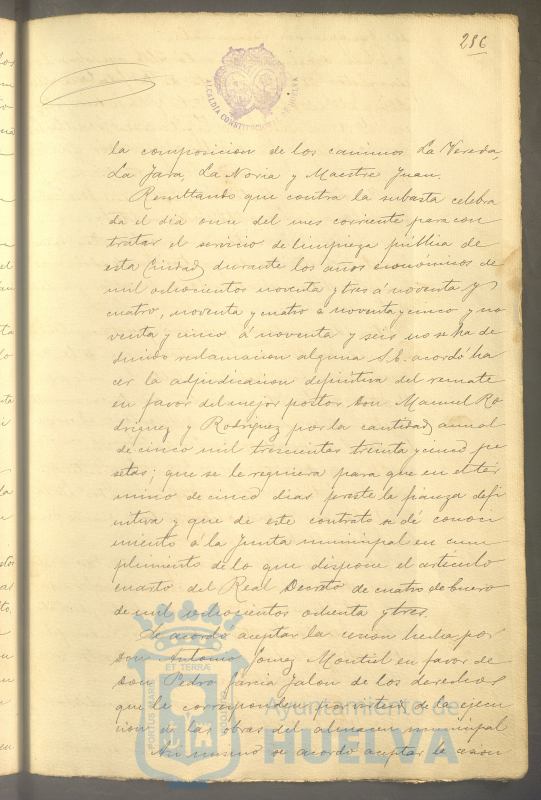 286
ALCALDÍA CONSTITUCIONAL DE HUELVA
la composicion de los caminos La Vereda,
La Jara, La Noria y Maestre Juan.
Resultando que contra la subasta celebra
da el dia once del mes corriente para con
tratar el servicio de limpieza pública de
esta Ciudad durante los años económicos de
mil ochocientos noventa y tres á noventa y
cuatro, noventa y cuatro á noventa y cinco y no
venta y cinco á noventa y seis no se ha de
ducido reclamacion alguna S.E. acordó ha
cer la adjudicacion definitiva del remate
en favor del mejor postor Don Manuel Ro
driguez y Rodriguez por la cantidad anual
de cinco mil trescientas treinta y cinco pe
setas; que se le requiera para que en el tér
mino de cinco dias preste la fianza defi
nitiva y que de este contrato se dé conoci
miento á la Junta municipal en cum
plimiento de lo que dispone el artículo
cuarto del Real Decreto de cuatro de Enero
de mil ochocientos ochenta y tres.
Se acordó aceptar la cesion hecha por
Don Antonio Gomez Montiel en favor de
Don Pedro Garcia Jalon de los derechos
que le corresponden por virtud de la ejecu
cion de las obras del almacen municipal
Asi mismo se acordó aceptar la cesion
PORTUS MARIS ET TERRÆ CUSTODIA
Ayuntamiento de
HUELVA